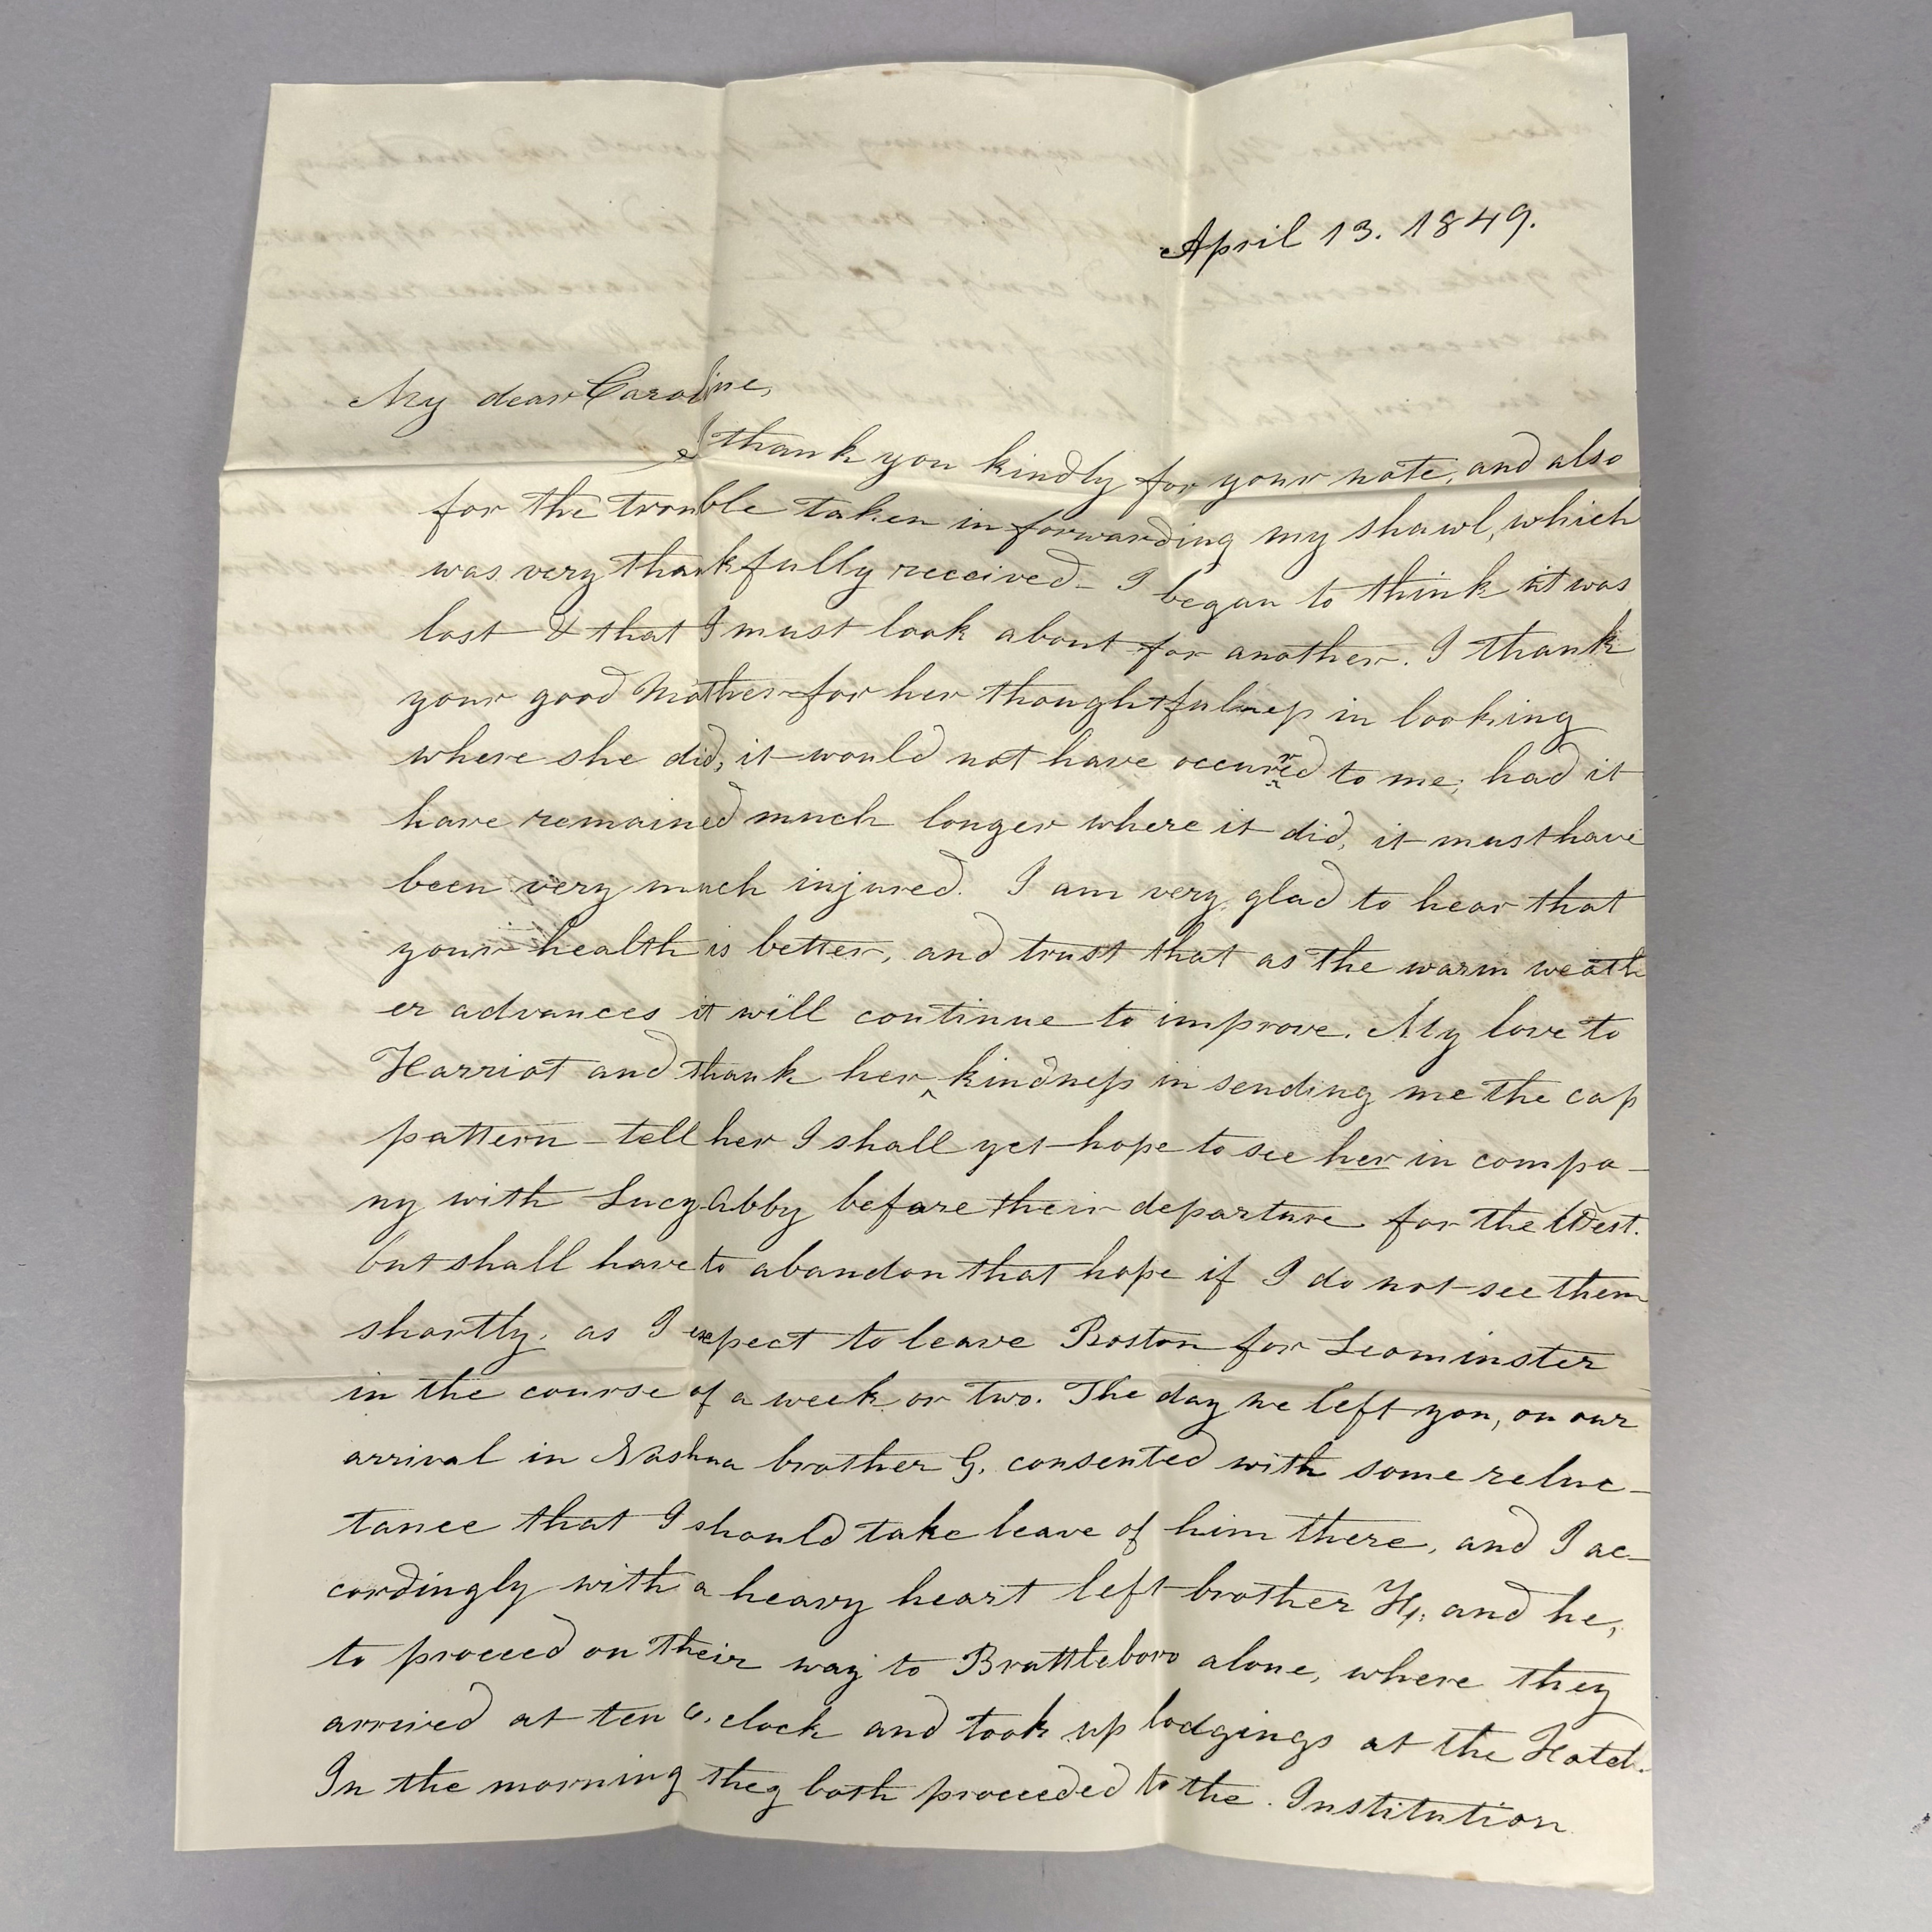 April 13. 1849.
My dear Caroline,
I thank you kindly for your note, and also
for the trouble taken in forwarding my shawl, which
was very thankfully received - I began to think it was
lost & that I must look about for another. I thank
your good Mother for her thoughtfulness in looking
where she did, it would not have occurred to me; had it
have remained much longer where it did, it must have
been very much injured. I am very glad to hear that
your health is better, and trust that as the warm weath
er advances it will continue to improve. My love to
Harriot and thank her ^ kindness in sending me the cap
pattern - tell her I shall yet hope to see her in compa-
ny with Lucy Abby before their departure for the West.
but shall have to abandon that hope if I do not see them
shortly, as I expect to leave Boston for Leominster
in the course of a week or two. The day we left you, on our
arrival in Nashua brother G. consented with some reluc-
tance that I should take leave of him there, and I ac-
cordingly with a heavy heart left brother H. and he,
to proceed on their way to Brattleboro alone, where they
arrived at ten o, clock and took up lodgings at the Hotel.
In the morning they both proceeded to the Institution